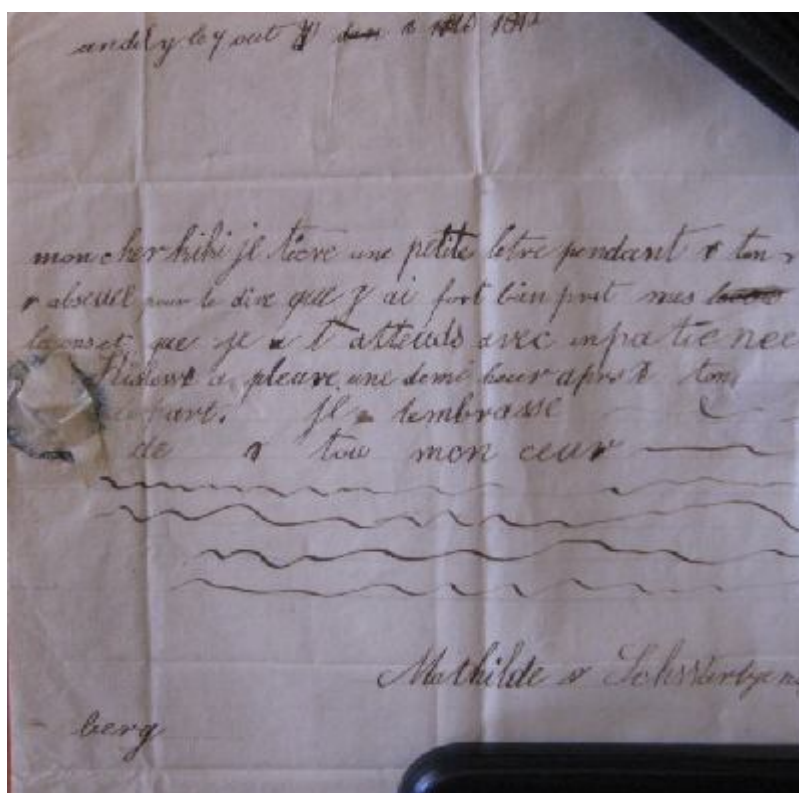 andily le 7 out
mon cher kiki je técre une petite letre pendant ton
absence pour te dire que j ai fort bien prit mes
leçons et que je t attends avec inpatience
a pleure une demi heur apres ton
part. je tembrasse
de tou mon ceur
Mathilde
berg